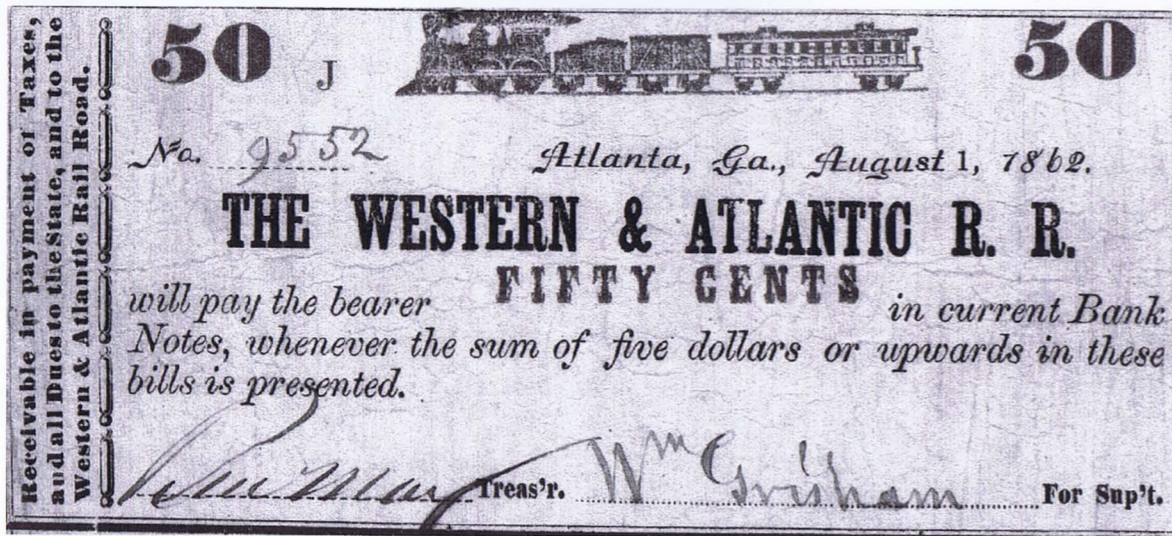 Receivable in payment of Taxes,
and all Dues to the State, and to the
Western & Atlantic Rail Road.
50 J 50
No. 9552 Atlanta, Ga., August 1, 1862.
THE WESTERN & ATLANTIC R. R.
will pay the bearer FIFTY CENTS in current Bank
Notes, whenever the sum of five dollars or upwards in these
bills is presented.
Treas'r. Wm Grisham For Sup't.